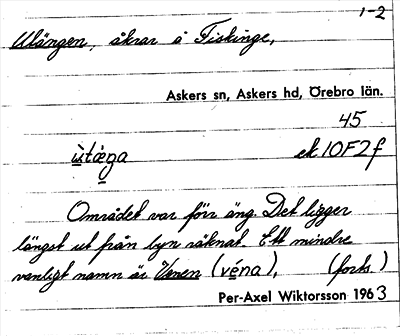 1-2
Utängen, åkrar å Fiskinge,
Askers sn, Askers hd, Örebro län.
45
ùtæŋa ek 10F2f
Området var förr äng. Det ligger
längst ut från byn räknat. Ett mindre
vanligt namn är Venen (véna), (forts.)
Per-Axel Wiktorsson 1963